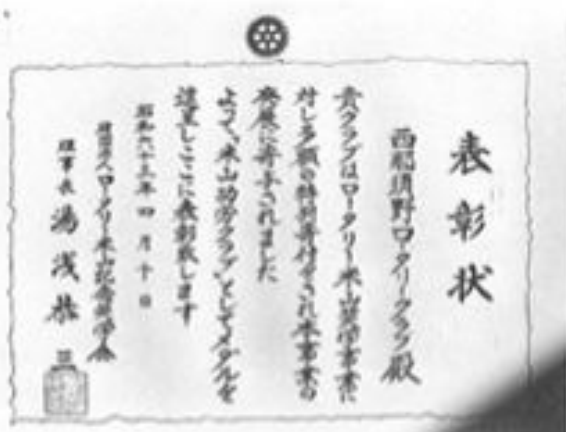 表彰状
西那須野ロータリークラブ殿
貴クラブはロータリー米山奨学事業に
対し多額の特別寄付をされ本事業の
発展に寄与されました
よって、米山功労クラブとしてメダルを
贈呈しここに表彰致します
昭和六十三年四月十日
財団法人ロータリー米山記念奨学会
理事長 湯浅恭